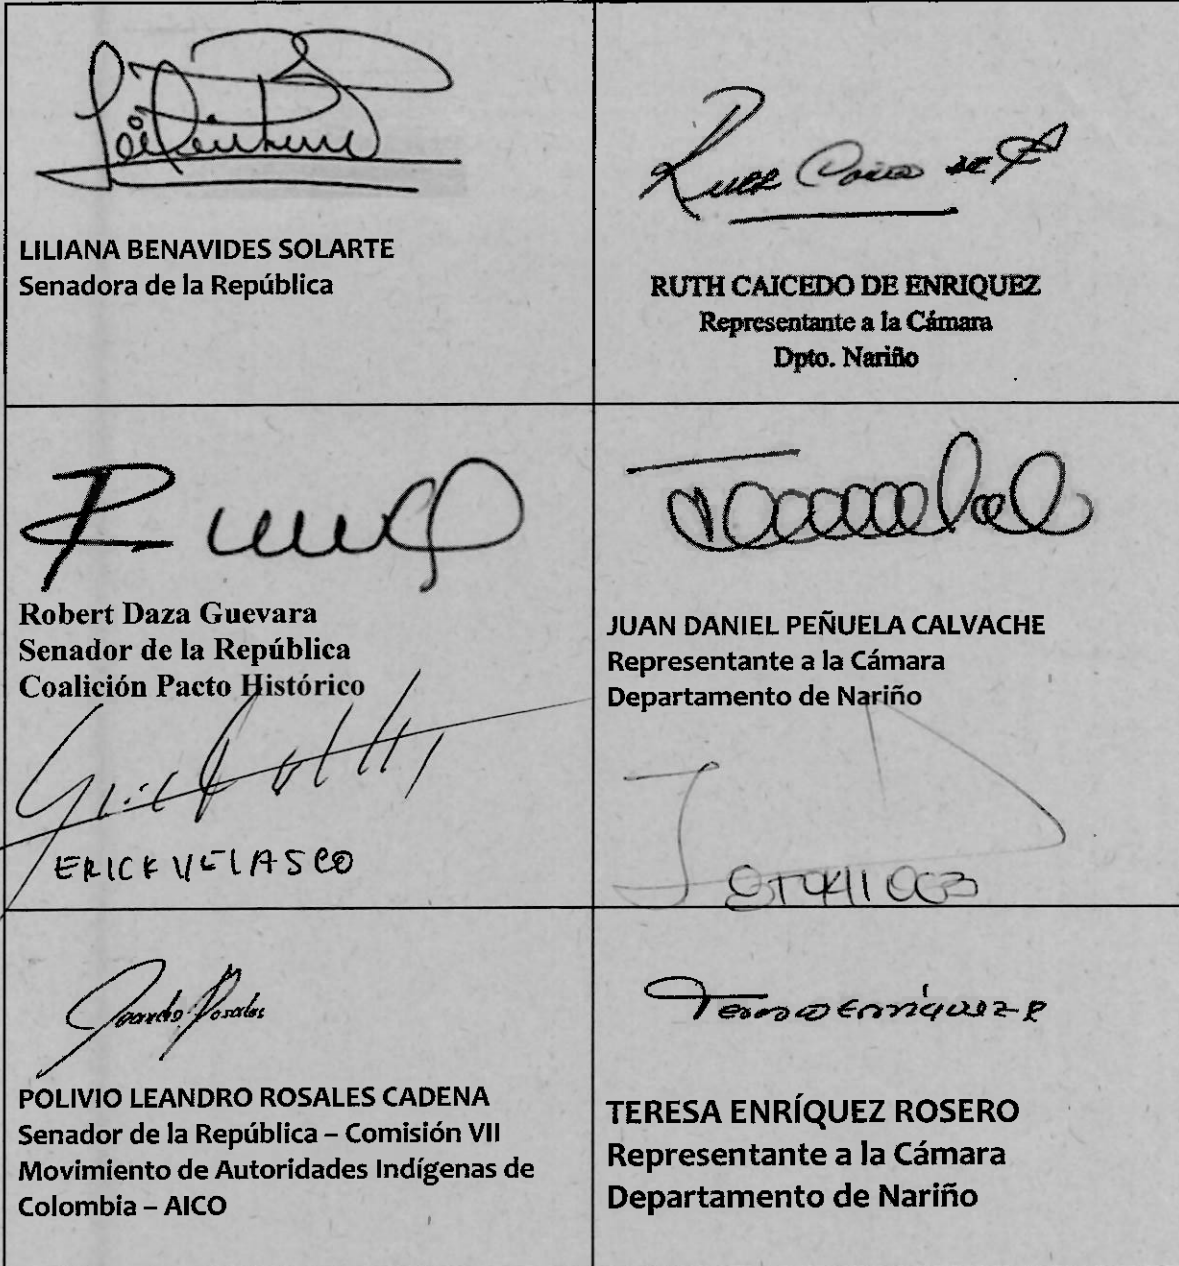 LILIANA BENAVIDES SOLARTE
Senadora de la República
RUTH CAICEDO DE ENRIQUEZ
Representante a la Cámara
Dpto. Nariño
Robert Daza Guevara
Senador de la República
Coalición Pacto Histórico
ERICK VELASCO
JUAN DANIEL PEÑUELA CALVACHE
Representante a la Cámara
Departamento de Nariño
POLIVIO LEANDRO ROSALES CADENA
Senador de la República – Comisión VII
Movimiento de Autoridades Indígenas de
Colombia – AICO
Teresa Enríquez R
TERESA ENRÍQUEZ ROSERO
Representante a la Cámara
Departamento de Nariño